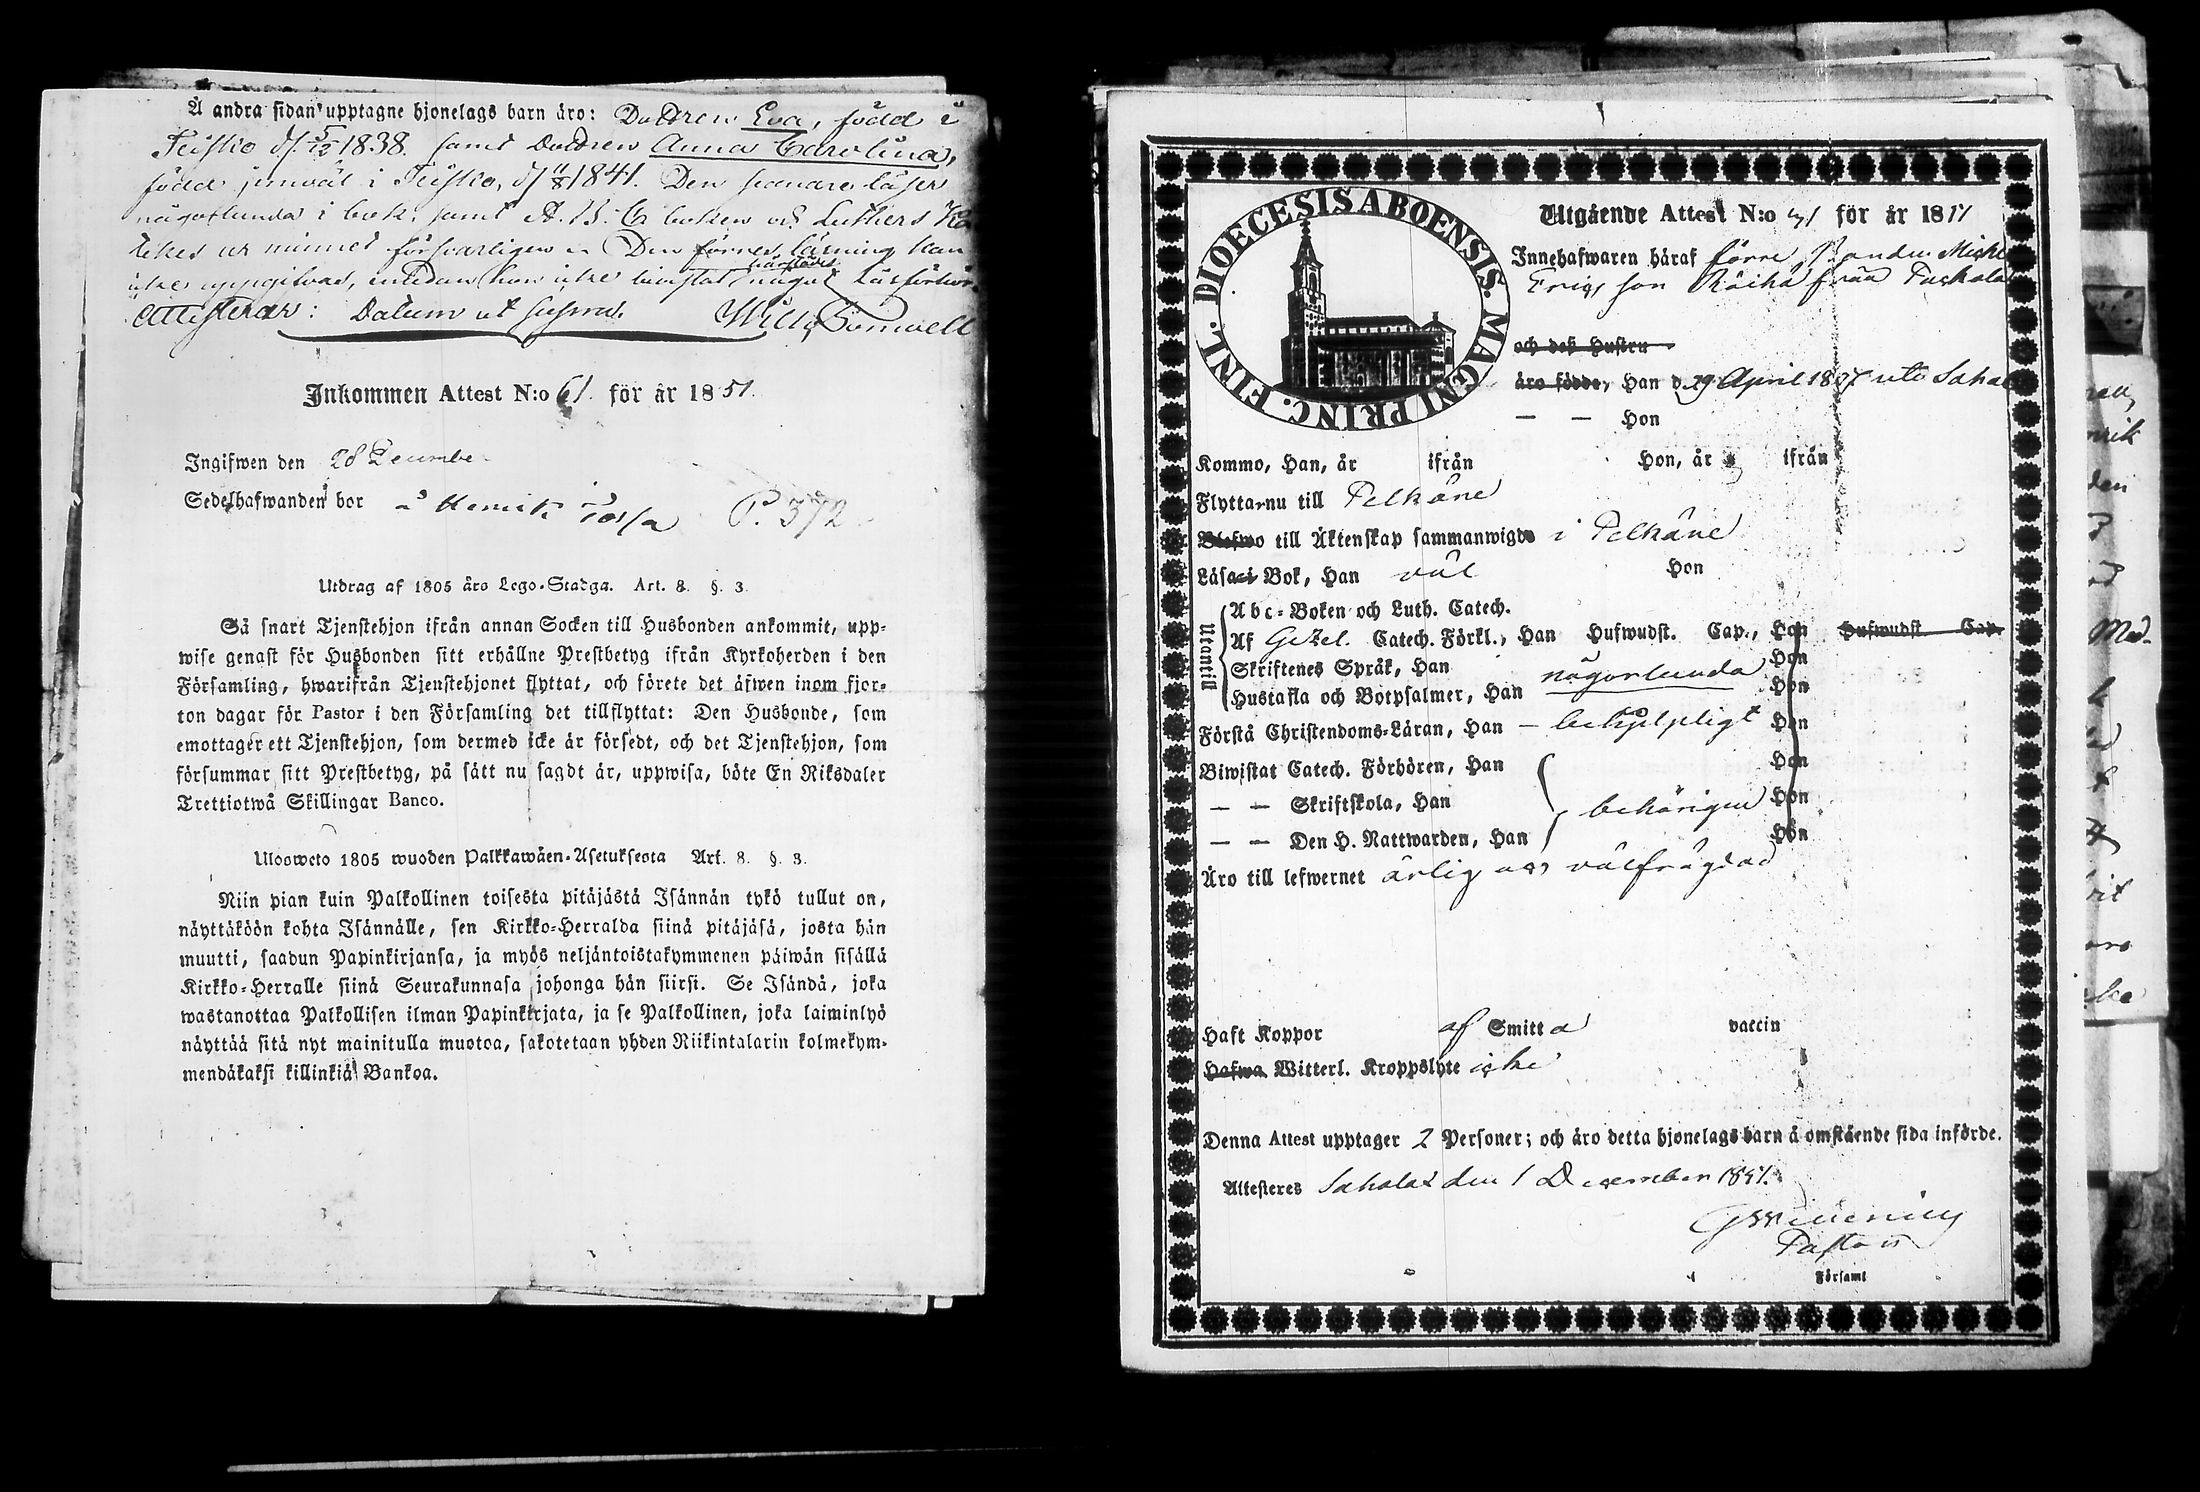 Å andra sidan upptagne hjonelags barn äro: Dottren Eva, född i
Teisko d. 5/12 1838. samt Dottren Anna Carolina,
född jemväl i Teisko, d. 11/8 1841. Den senare läser
någorlunda i bok, samt A. B. C boken och Luthers
ur minnet försvarligen. Den förres läsning kan
icke uppgifvas, emedan hon icke bevistat härstädes något Läsförhör.
Attesterar: Datum ut supra.
Inkommen Attest N:o 61. för år 1851.
Ingifwen den 28 December
Sedelhafwanden bor å P. 372
Utdrag af 1805 års Lego-Stadga. Art. 8. §. 3.
Så snart Tjenstehjon ifrån annan Socken till Husbonden ankommit, upp-
wise genast för Husbonden sitt erhållne Prestbetyg ifrån Kyrkoherden i den
Församling, hwarifrån Tjenstehjonet flyttat, och förete det äfwen inom fjor-
ton dagar för Pastor i den Församling det tillflyttat: Den Husbonde, som
emottager ett Tjenstehjon, som dermed icke är försedt, och det Tjenstehjon, som
försummar sitt Prestbetyg, på sätt nu sagdt är, uppwisa, böte En Riksdaler
Trettiotwå Skillingar Banco.
Uloosweto 1805 wuoden Palkkawäen-Asetuksesta Art. 8. §. 3.
Niin pian kuin Palkollinen toisesta pitäjästä Isännän tykö tullut on,
näyttäköön kohta Isännälle, sen Kirkko-Herralda siinä pitäjäsä, josta hän
muutti, saadun Papinkirjansa, ja myös neljäntoistakymmenen päiwän sisällä
Kirkko-Herralle siinä Seurakunnasa johonga hän siirsi. Se Isändä, joka
wastanottaa Palkollisen ilman Papinkirjata, ja se Palkollinen, joka laiminlyö
näyttää sitä nyt mainitulla muotoa, sakotetaan yhden Riikintalarin kolmekym-
mendäkaksi killinkiä Bankoa.
DIOECESIS ABOENSIS. MAGNI PRINC. FINL.
Utgående Attest N:o 41 för år 1851
Innehafwaren häraf förre Bonden Michel
Ericsson Räihä från
och deß Hustru
äro födde, Han d. 29 April 1807 uti Sahalax
— — Hon
Kommo, Han, år ifrån Hon, år ifrån
Flyttar nu till Pelkäne
Blefwo till Äktenskap sammanwigde i Pelkäne
Läsa i Bok, Han väl Hon
Utantill
Abc-Boken och Luth. Catech.
Af Gezel. Catech. Förkl., Han Hufwudst. Cap., Hon Hufwudst. Cap.
Skriftenes Språk, Han någorlunda Hon
Hustafla och Botpsalmer, Han Hon
Förstå Christendoms-Läran, Han — behjelpligt Hon
Biwistat Catech. Förhören, Han Hon
— — Skriftskola, Han behörigen Hon
— — Den H. Nattwarden, Han Hon
Äro till lefwernet ärlig och välfrägdad
Haft Koppor af Smitta vaccin
Hafwa Witterl. Kroppslyte icke
Denna Attest upptager 2 Personer; och äro detta hjonelags barn å omstående sida införde.
Attesteres Sahalax den 1 December 1851.
Pastor
Församl